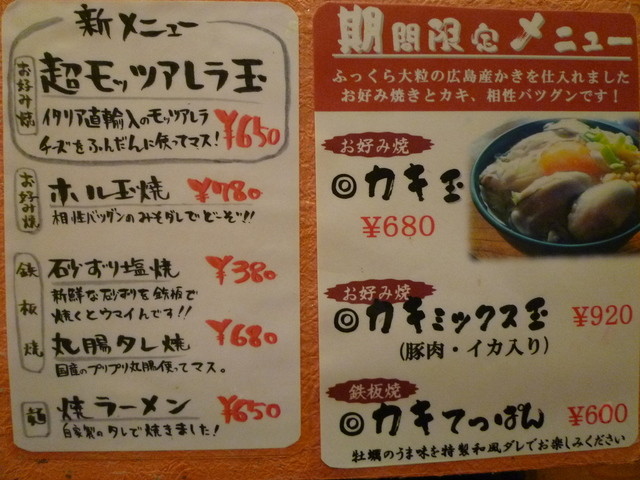 新メニュー
お好み焼
超モッツアレラ玉
イタリア直輸入のモッツアレラ
チーズをふんだんに使ってマス!
¥650
お好み焼
ホル玉焼 ¥780
相性バツグンのみそダレでどーぞ!!
鉄板焼
砂ずり塩焼 ¥380
新鮮な砂ずりを鉄板で
焼くとウマイんです!!
丸腸タレ焼 ¥680
国産のプリプリ丸腸使ってマス。
麺
焼ラーメン ¥650
自家製のタレで焼きました!
期間限定メニュー
ふっくら大粒の広島産かきを仕入れました
お好み焼きとカキ、相性バツグンです!
お好み焼
◎カキ玉
¥680
お好み焼
◎カキミックス玉 ¥920
(豚肉・イカ入り)
鉄板焼
◎カキてっぱん ¥600
牡蠣のうま味を特製和風ダレでお楽しみください